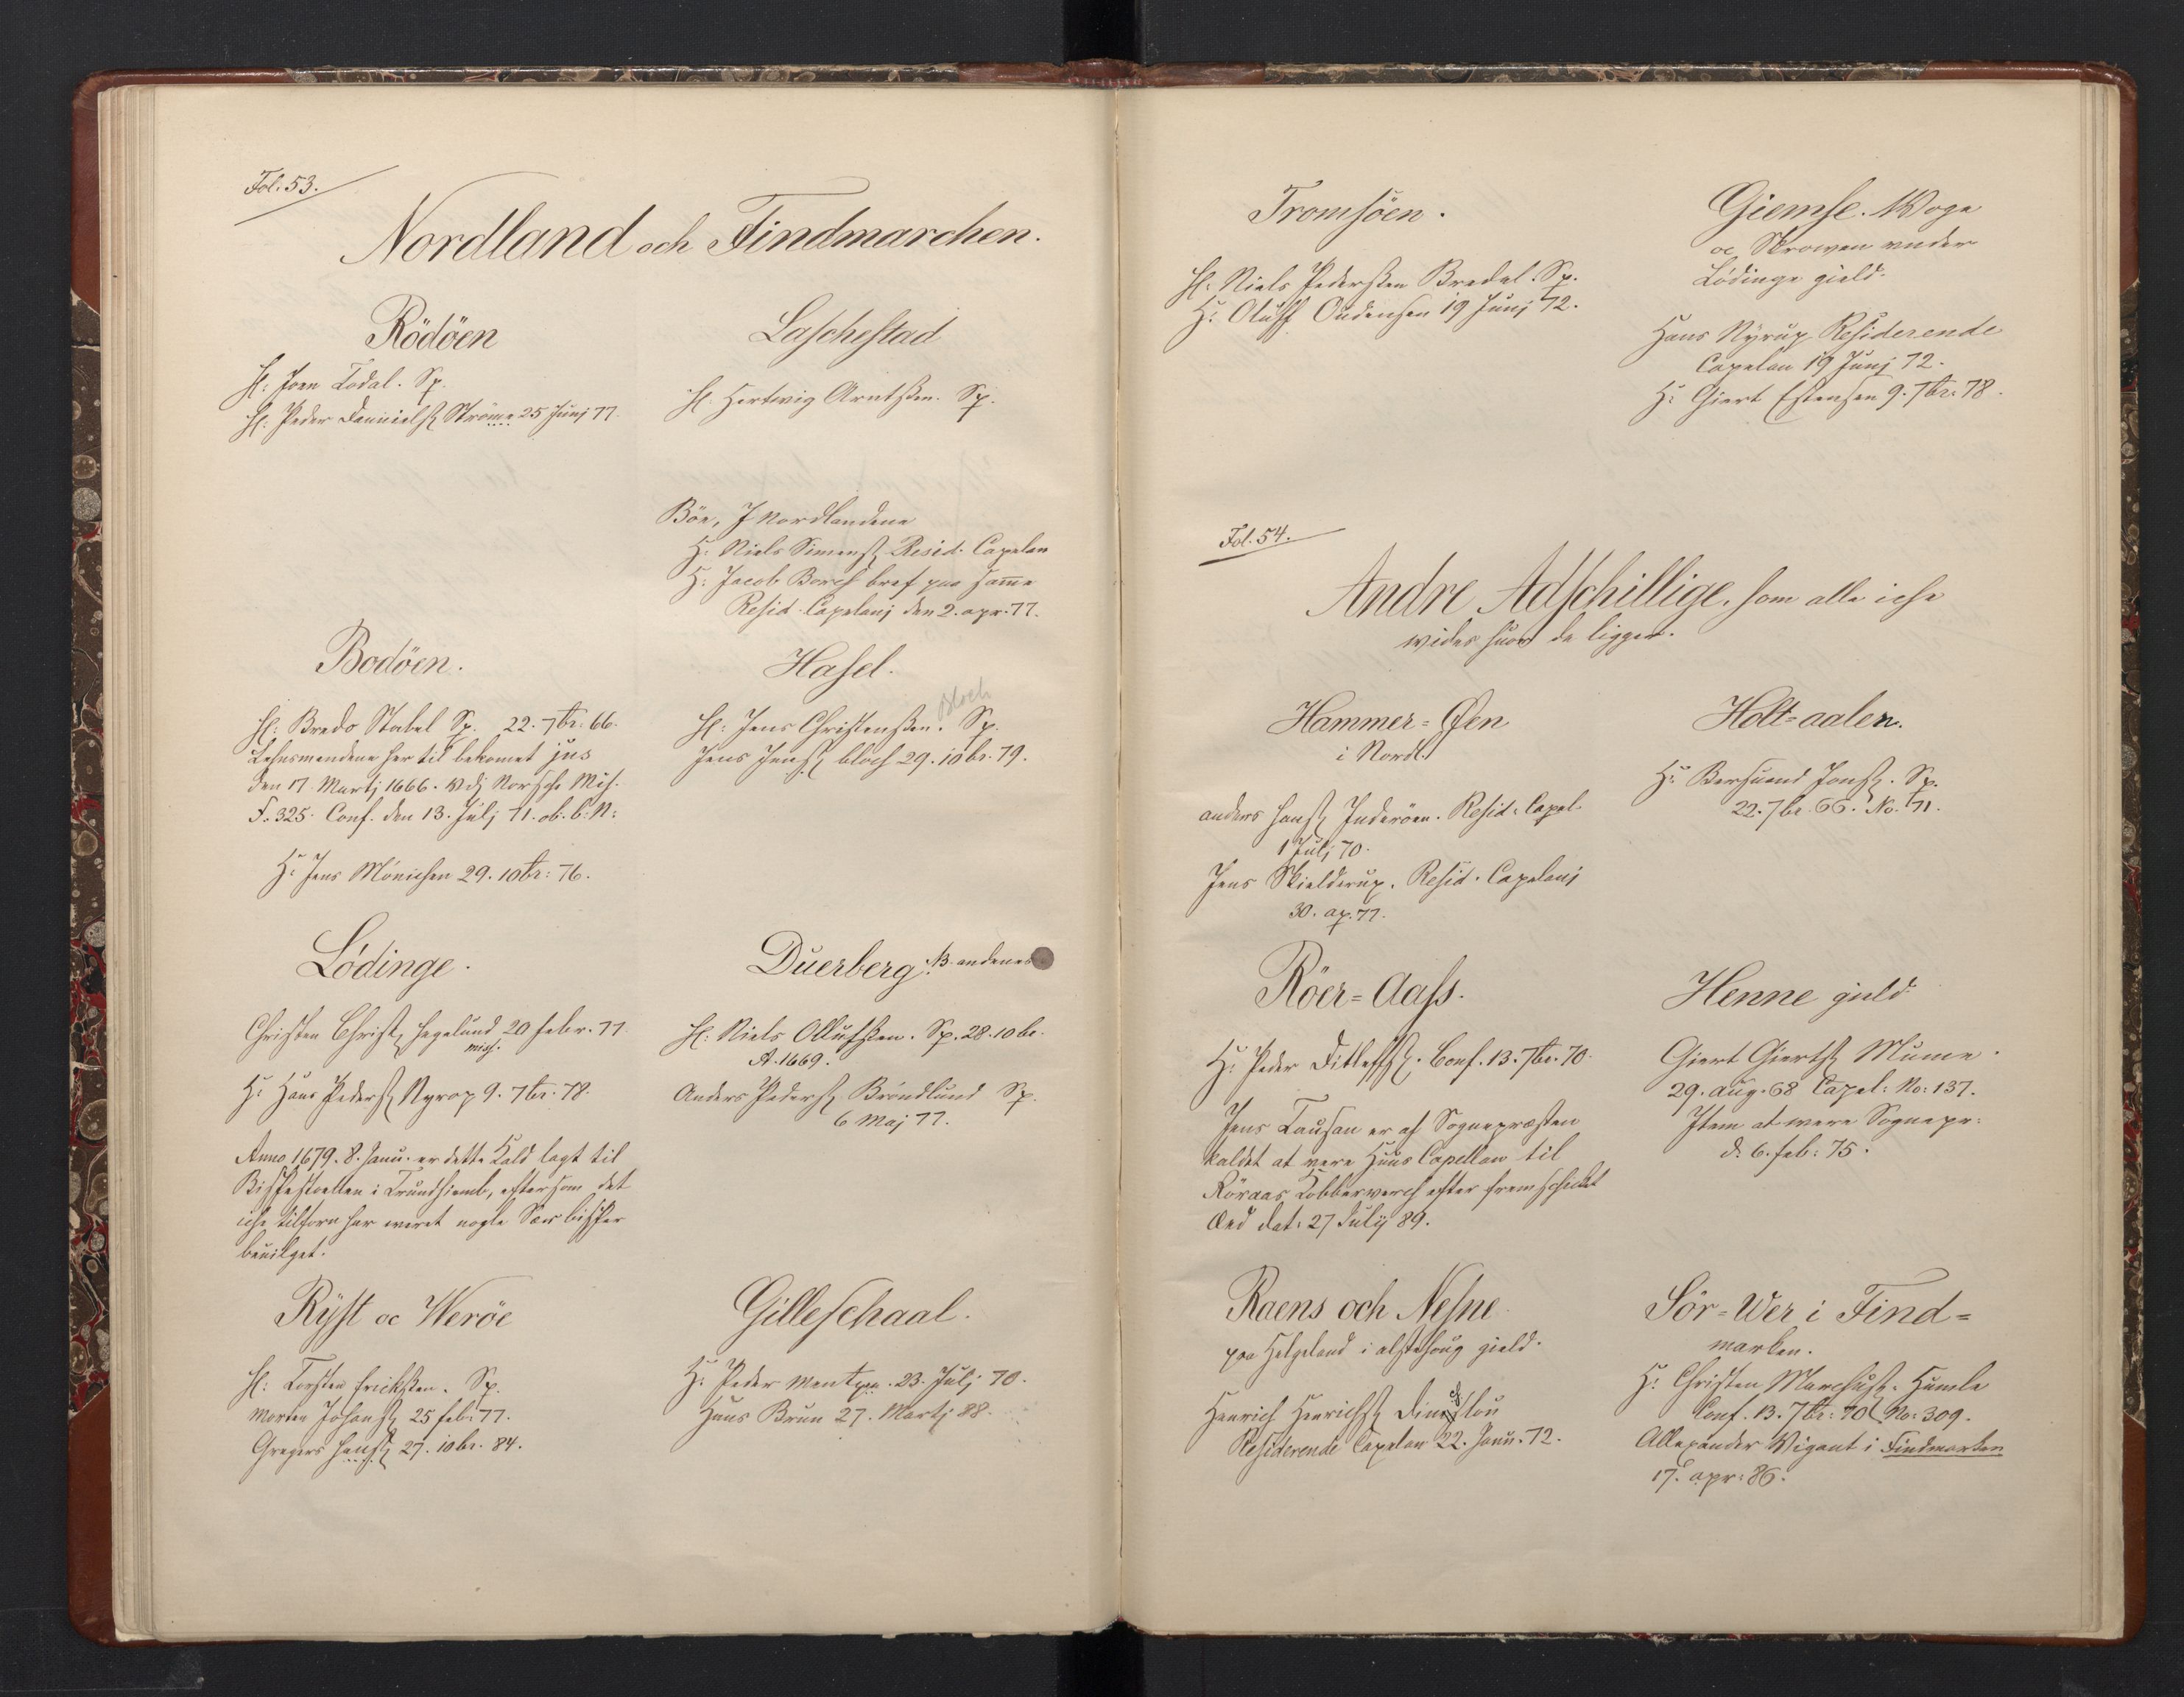 Fol. 53.
Nordland och Findmarchen.
Rödöen
H: Joen Todal. Sp.
H: Peder Danniels: Ströme 25 Junj 77.
Laschestad
H. Hertwig Arntssen. Sp.
Böe, J Nordlandene
H: Niels Simens: Resid. Capelan
H: Jacob Borch bref paa samme
Resid. Capelanj den 2. apr. 77.
Bodöen.
H: Bredo Stabel Sp. 22. 7br: 66.
Lehnsmendene her til bekomet jus
den 17 Martj 1666. Vdj Norsche Miss.
F. 325. Conf. den 13. Julj 71. ob. b. N:
Hr Jens Mönichen 29. 10br: 76.
Hasel.
Bloch
H: Jens Christensen. Sp.
Jens Jens: bloch 29. 10br. 79.
Lödinge.
Christen Christ: Hegelund 20 febr. 77.
miss.
Hr Hans Peders: Nyrop 9. 7br. 78.
Anno 1679. 8. Janu. er dette Kald lagt til
Bispestoelen i Trundhiemb, eftersom det
iche tilforn har weret nogle Sær bisper
beuilget.
Duerberg. NB. andenes
H: Niels Ollufssen. Sp. 28. 10br.
A. 1669.
Anders Peders: Bröndlund Sp.
6 Maj 77.
Ryst oc Weröe
H: Torsten Erichssen. Sp.
Morten Johans: 25 feb: 77.
Gregers Hans: 27. 10br. 84.
Gilleschaal.
Hr Peder 23. Julj 70.
Hans Brun 27. Martj 88.
Tromsöen.
H: Niels Pederssen Bredal. Sp.
Hr Oluff Oudensen 19 Junj 72.
Giemse. Woge
oc Skrowen under
Lödinge gield.
Hans Nyrup Residerende
Capelan 19 Junj 72.
Hr Giert Estensen 9. 7br: 78.
Fol. 54.
Andre Adschillige, som alle iche
wides huor de ligger.
Hammer=Øen
i Nordl.
anders Hans: Inderöen. Resid: Capel.
1 Julj 70.
Jens Skielderup. Resid. Capelanj
30. ap. 77.
Holt=aalen.
Hr Bersuend Jons:. Sp.
22. 7br. 66. No. 71.
Röer=Aass.
Hr Peder Ditleffs:. Conf. 13. 7br. 70.
Jens Tausan er af Sognepræsten
kaldet at were Huus Capellan til
Röraas Kobberwerch efter fremschicket
Ord dat: 27 Julij 89.
Henne gield
Giert Gierts: Mume.
29. Aug. 68 Capel: No: 137.
Item at were Sognepr:
d. 6. feb: 75.
Raens och Nesne.
paa Helgeland i alstahoug gield.
Henrich Henrichs:
Residerende Capelan 22. Janu. 72.
Sör=Wer i Find=
marken.
Hr Christen Marchus:. Humle
Conf. 13. 7br: 70 No: 309.
Allexander Wigant i Findmarken
17. apr: 86.